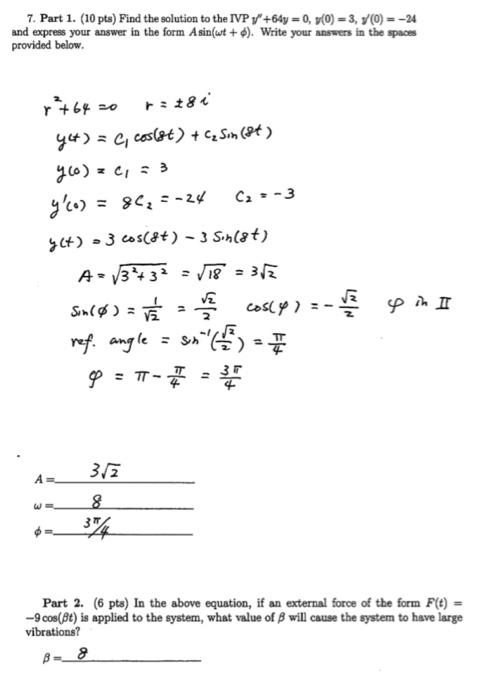 7. Part 1. (10 pts) Find the solution to the IVP y″+64y = 0, y(0) = 3, y′(0) = −24
and express your answer in the form A sin(ωt + ϕ). Write your answers in the spaces
provided below.
r²+64=0 r = ±8i
y(t) = C₁ cos(8t) + C₂ Sin(8t)
y(0) = C₁ = 3
y'(0) = 8C₂ = -24 C₂ = -3
y(t) = 3 cos(8t) - 3 Sin(8t)
A = √(3²+3²) = √18 = 3√2
Sin(φ) = 1/√2 = √2/2 cos(φ) = -√2/2 φ in II
ref. angle = sin⁻¹(√2/2) = π/4
φ = π - π/4 = 3π/4
A = 3√2
ω = 8
ϕ = 3π/4
Part 2. (6 pts) In the above equation, if an external force of the form F(t) =
−9 cos(βt) is applied to the system, what value of β will cause the system to have large
vibrations?
β = 8